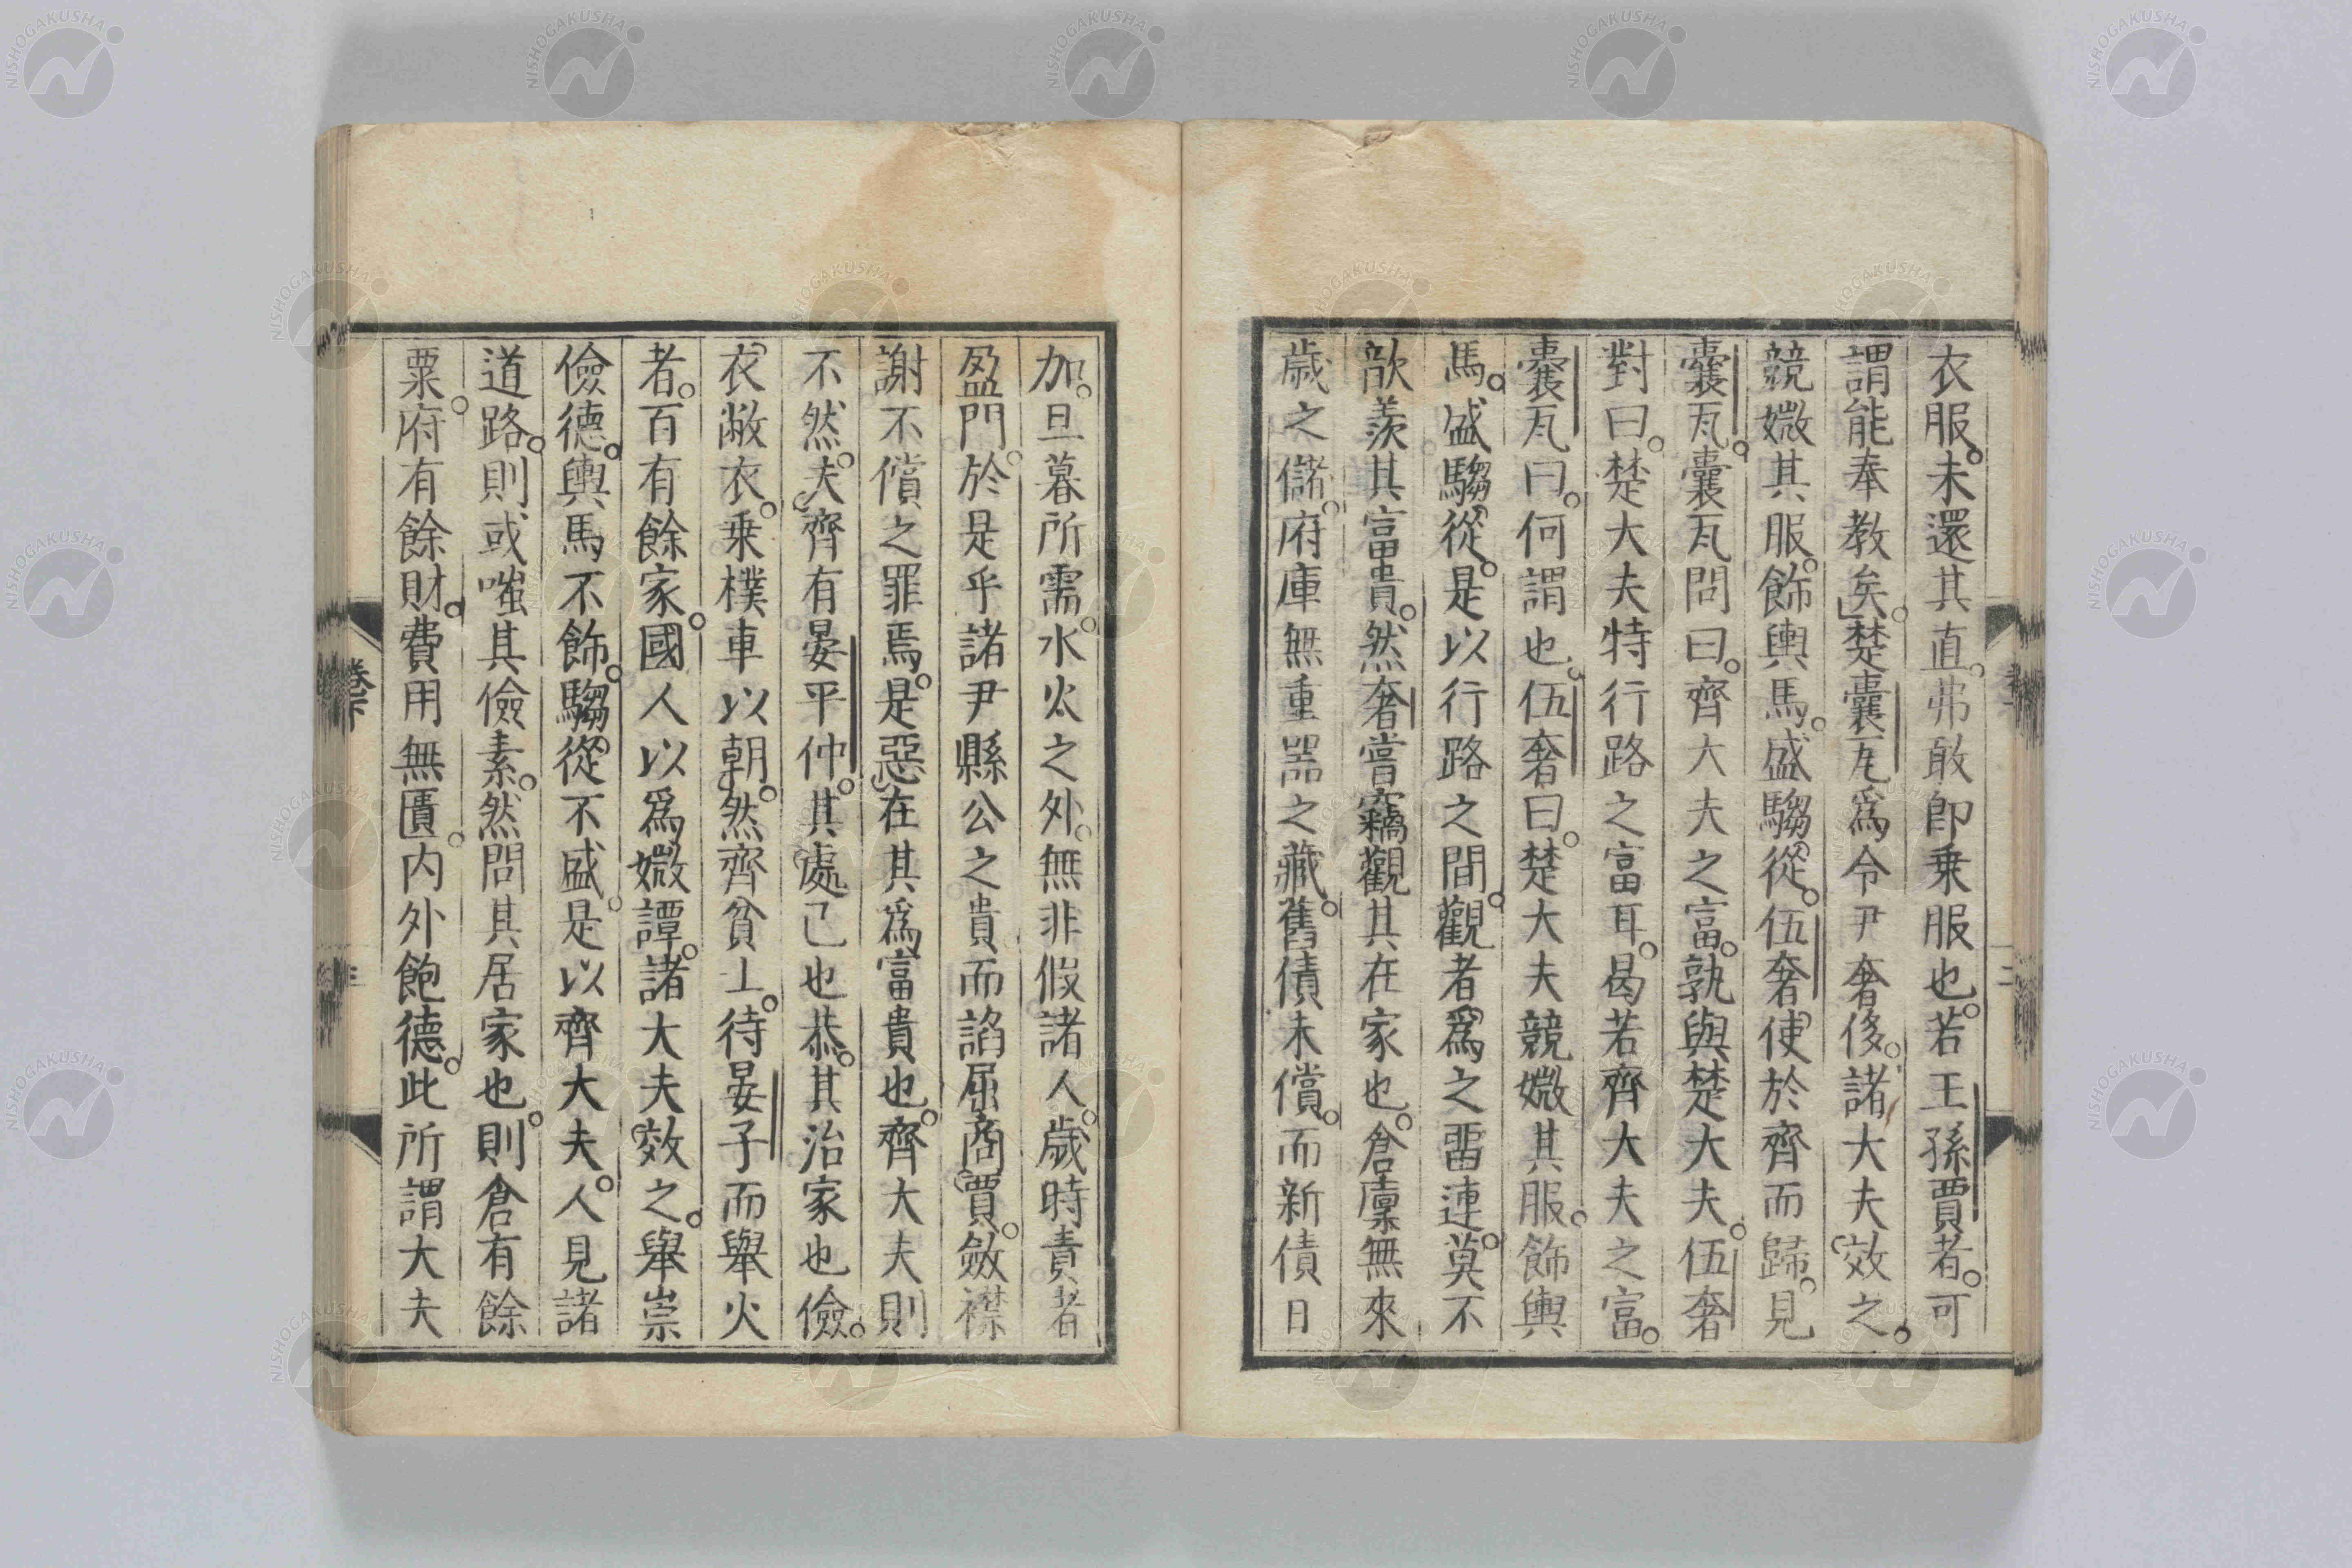 衣服。未還其直。弗敢卽乗服也。若王孫賈者。可
謂能奉教矣。」楚囊瓦爲令尹奢侈。諸大夫效之。
競媺其服。飾輿馬。盛騶從。伍奢使於齊而歸。見
囊瓦。囊瓦問曰。齊大夫之富。孰與楚大夫。伍奢
對曰。楚大夫特行路之富耳。曷若齊大夫之富。
囊瓦曰。何謂也。伍奢曰。楚大夫競媺其服。飾輿
馬。盛騶從。是以行路之間。觀者爲之畱連。莫不
歆羨其富貴。然奢嘗竊觀其在家也。倉廩無來
歳之儲。府庫無重器之藏。舊債未償。而新債日
加。旦暮所需。水火之外。無非假諸人。歳時責者
盈門。於是乎諸尹縣公之貴而諂屈商賈。斂襟
謝不償之罪焉。是惡在其爲富貴也。齊大夫則
不然。夫齊有晏平仲。其處己也恭。其治家也儉。
衣敝衣。乗樸車以朝。然齊貧士。待晏子而舉火
者。百有餘家。國人以爲媺譚。諸大夫效之。舉崇
儉德。輿馬不飾。騶從不盛。是以齊大夫。人見諸
道路。則或嗤其儉素。然問其居家也。則倉有餘
粟。府有餘財。費用無匱。内外飽德。此所謂大夫
卷下
NISHOGAKUSHA